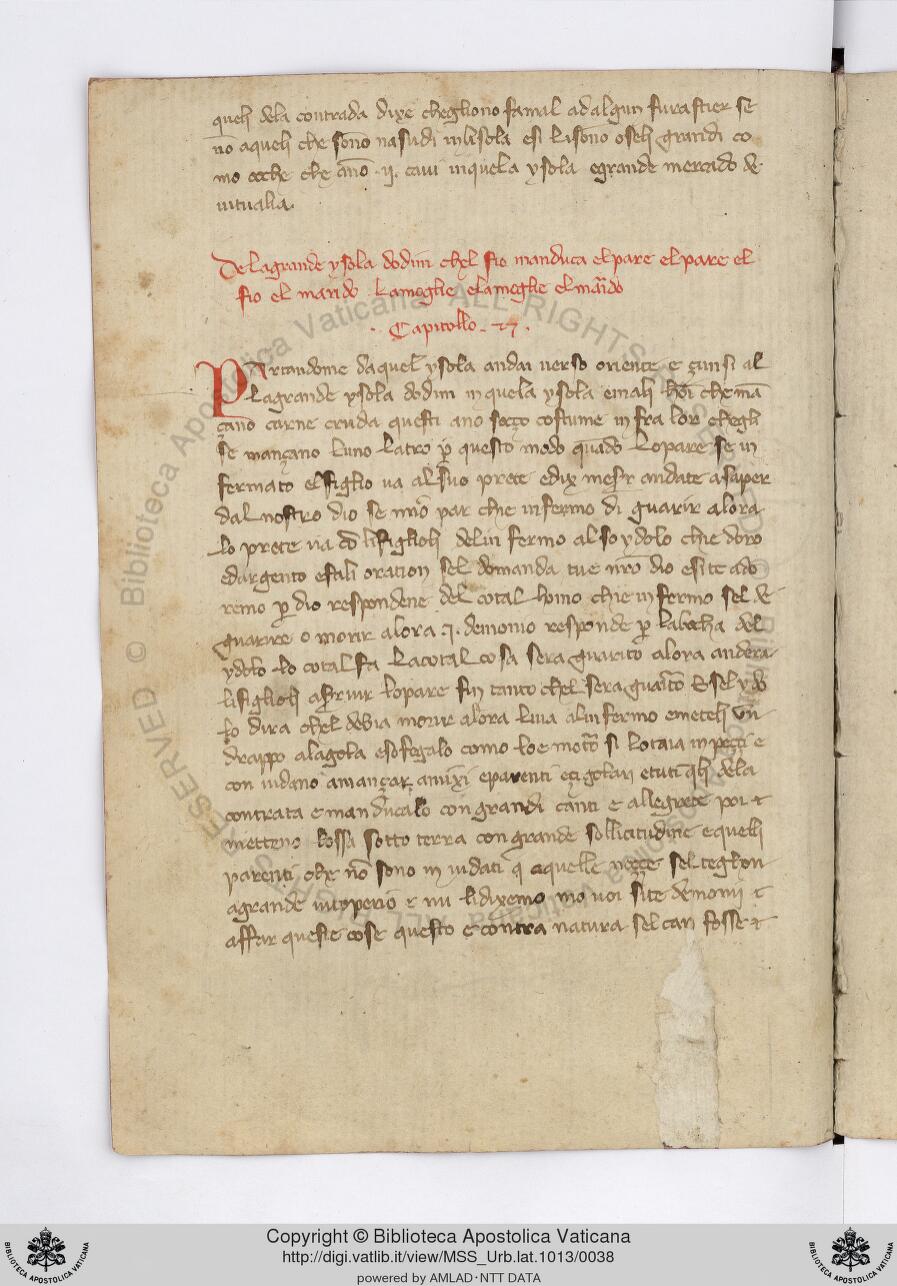 queli dela contrada dixe chegliono fa mal ad algun furastier se
nō aqueli che sono nasudi in lisola esi li sono oseli grandi co
mo oche che āno .ij. cavi inquela ysola egrande mercado de
uitualia.
De la grande ysola dodim chel fio manduca el pare el pare el
fio el marido la moglie ela moglie el marido
Capitollo.
Partandome daquel ysola andai uerso oriente e çunsi al
la grande ysola dodim in quela ysola e mali hoī che mā
çano carne cruda questi ano soço costume in fra lor chegli
se mançano luno latro p questo modo quādo lo pare se in
fermato el figlio ua al suo prete e dix meser andate a saper
dal nostro dio se mio par che infermo di guarir alora
lo prete ua cō li figlioli del in fermo al so ydolo che doro
e dargento e fali oration sel domanda tue nr̄o dio esi te ado
remo p dio respondene del cotal homo che in fermo sel de
guarire o morir alora .j. demonio responde p la bocha del
ydolo lo cotal fa la cotal cosa sera guarito alora andera
li figlioli a seruir lo pare fin tanto chel sera guarito E sel ydo
lo dira chel debia morir alora lui ua al in fermo e meteli un
drappo a la gola e sofegalo como lo e morto si lo taia in peççi e
con uidano a mançar amixi e parenti e çigolari e tuti qli dela
contrata e manducalo con grandi canti e allegreçe poi et
metteno lossa sotto terra con grande sollicitudine e queli
parenti che nō sono in uidati a quelle noççe sel teglion
a grande uitoperio e nui li dixemo mo uoi site demoni et
affar queste cose questo e contra natura sel can fosse et
Copyright © Biblioteca Apostolica Vaticana
http://digi.vatlib.it/view/MSS_Urb.lat.1013/0038
powered by AMLAD·NTT DATA